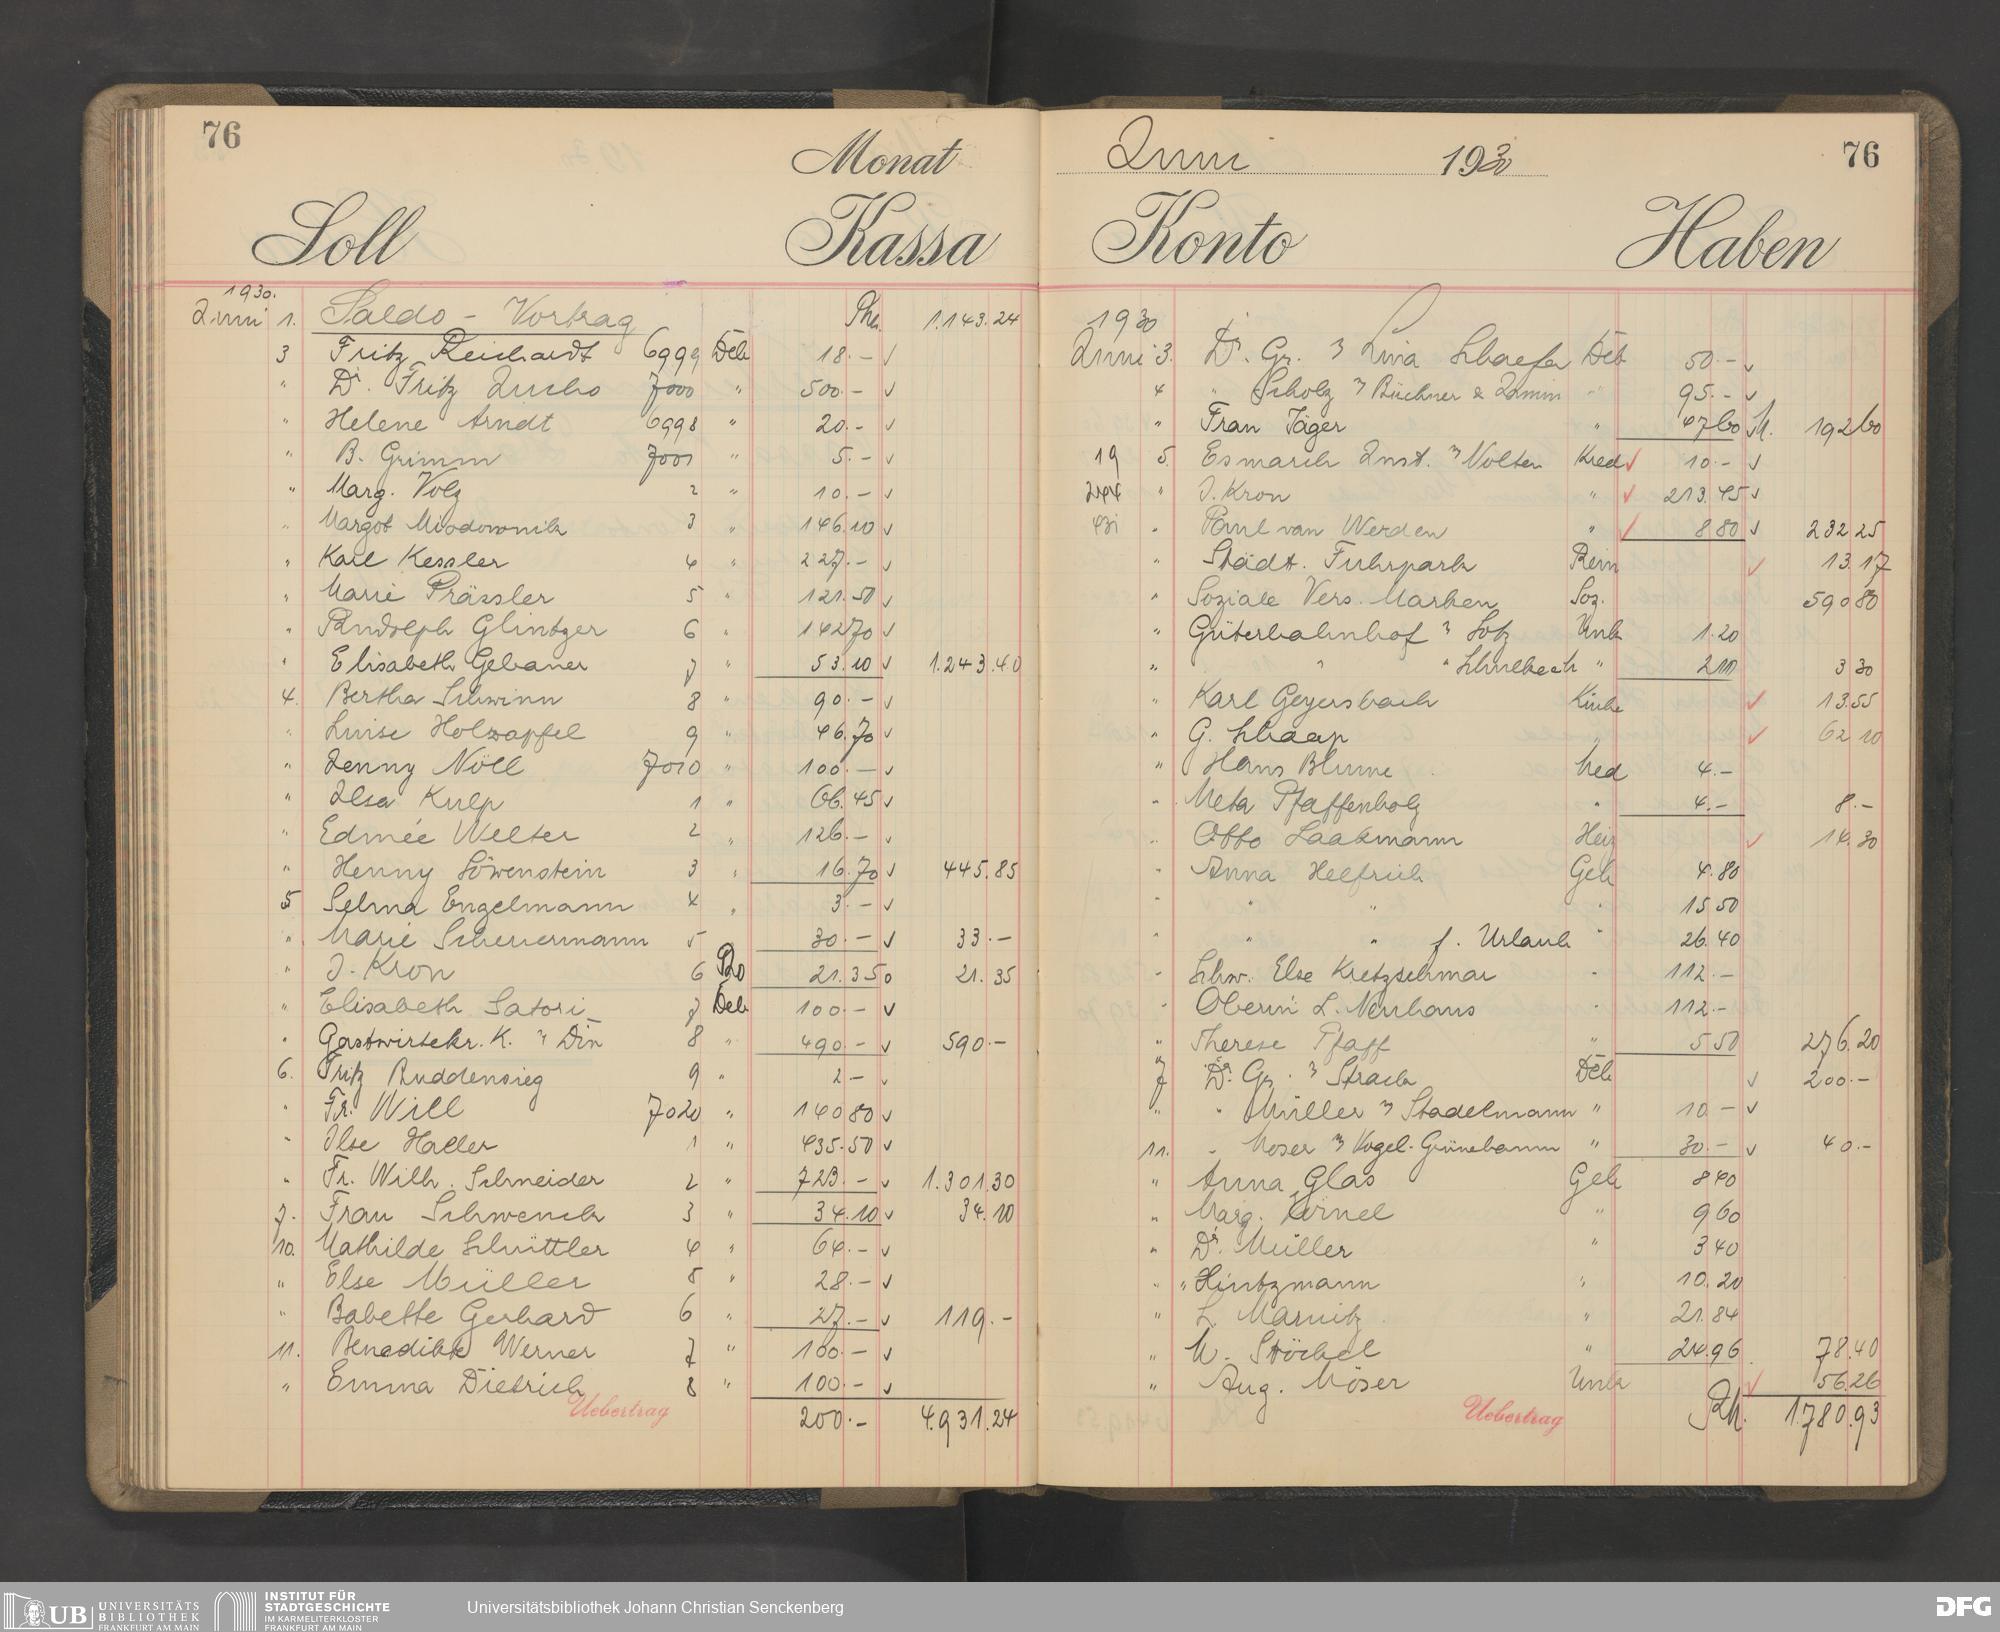 76
Monat
Soll Kassa
1930.
Juni 1. Saldo - Vortrag 1.143.24
3 Fritz Reichardt 6999 Deb 18.-
" Dr. Fritz Fuchs 7000 " 500.-
" Helene Arndt 6998 " 20.-
" B. Grimm 7001 " 5.-
" Marg. Volz 2 " 10.-
" Margot Miodownik 3 " 146.10
" Karl Kessler 4 " 227.-
" Marie Prässler 5 " 121.50
" Rudolph Glintzer 6 " 142 70
" Elisabeth Gebauer 7 " 53.10 1.243.40
4. Bertha Schwinn 8 " 90.-
" Luise Holzapfel 9 " 46.70
" Jenny Nöll 7010 " 100.-
" Ilsa Kulp 1 " 66.45
" Edmée Welter 2 " 126.-
" Henny Löwenstein 3 " 16.70 445.85
5 Selma Engelmann 4 " 3.-
" Marie Scheuermann 5 30.- 33.-
" J. Kron 6 21.35 21.35
" Elisabeth Satori 7 Deb 100.-
" Gastwirtekr. K. Din 8 " 490.- 590.-
6. Fritz Ruddensieg 9 " 2-
" Fr. Will 7020 " 140 80
" Ilse Haller 1 " 435.50
" Fr. Wilh. Schneider 2 " 723.- 1.301.30
7. Frau Schwenck 3 " 34.10 34.10
10. Mathilde Schnittler 4 " 64.-
" Else Müller 5 " 28.-
" Babette Gerhard 6 " 27.- 119.-
11. Benedikt Werner 7 " 100.-
" Emma Dietrich 8 " 100.-
Uebertrag 200.- 4.931.24
Juni 1930 76
Konto Haben
1930
Juni 3. Dr. Gr. Lina Schaefer Deb 50.-
4 " Scholz Büchner & " 95.-
" Frau Jäger " 47 60 M. 192 60
19 5. Esmarch Inst. Nolten Kred 10.-
244 " J. Kron " 213.45
431 " Paul van Werden " 8 80 232 25
" Städt. Fuhrpark Rein 13.17
" Soziale Vers. Marken Soz. 590 80
" Güterbahnhof Lotz Unk 1.20
" " " " 2 10 3 30
" Karl Geyersbach Küche 13.55
" G. Schaap " 62 10
" Hans Blume Med 4.-
" Meta Pfaffenholz " 4.- 8.-
" Otto Laakmann Heiz 14.30
" Anna Helfrich Geh 4.80
" " " " 15 50
" " " f. Urlaub " 26.40
" Schw. Else Kretzschmar " 112.-
" Oberin L. Neuhaus " 112.-
" Therese Pfaff " 5 50 276.20
7 Dr. Gr. Strack Deb 200.-
" " Müller Stadelmann " 10-
11. " Moser Vogel-Grünebaum " 30.- 40.-
" Anna Glas Geh 8 40
" Marg. Körnel " 9 60
" Dr. Müller " 3 40
" " Hintzmann " 10.20
" L. Marnitz " 21.84
" M. Stöckel " 24.96 78.40
" Aug. Möser Unk 56.26
Uebertrag 1.780.93
UB UNIVERSITÄTS
BIBLIOTHEK
FRANKFURT AM MAIN
INSTITUT FÜR
STADTGESCHICHTE
IM KARMELITERKLOSTER
FRANKFURT AM MAIN
Universitätsbibliothek Johann Christian Senckenberg
DFG